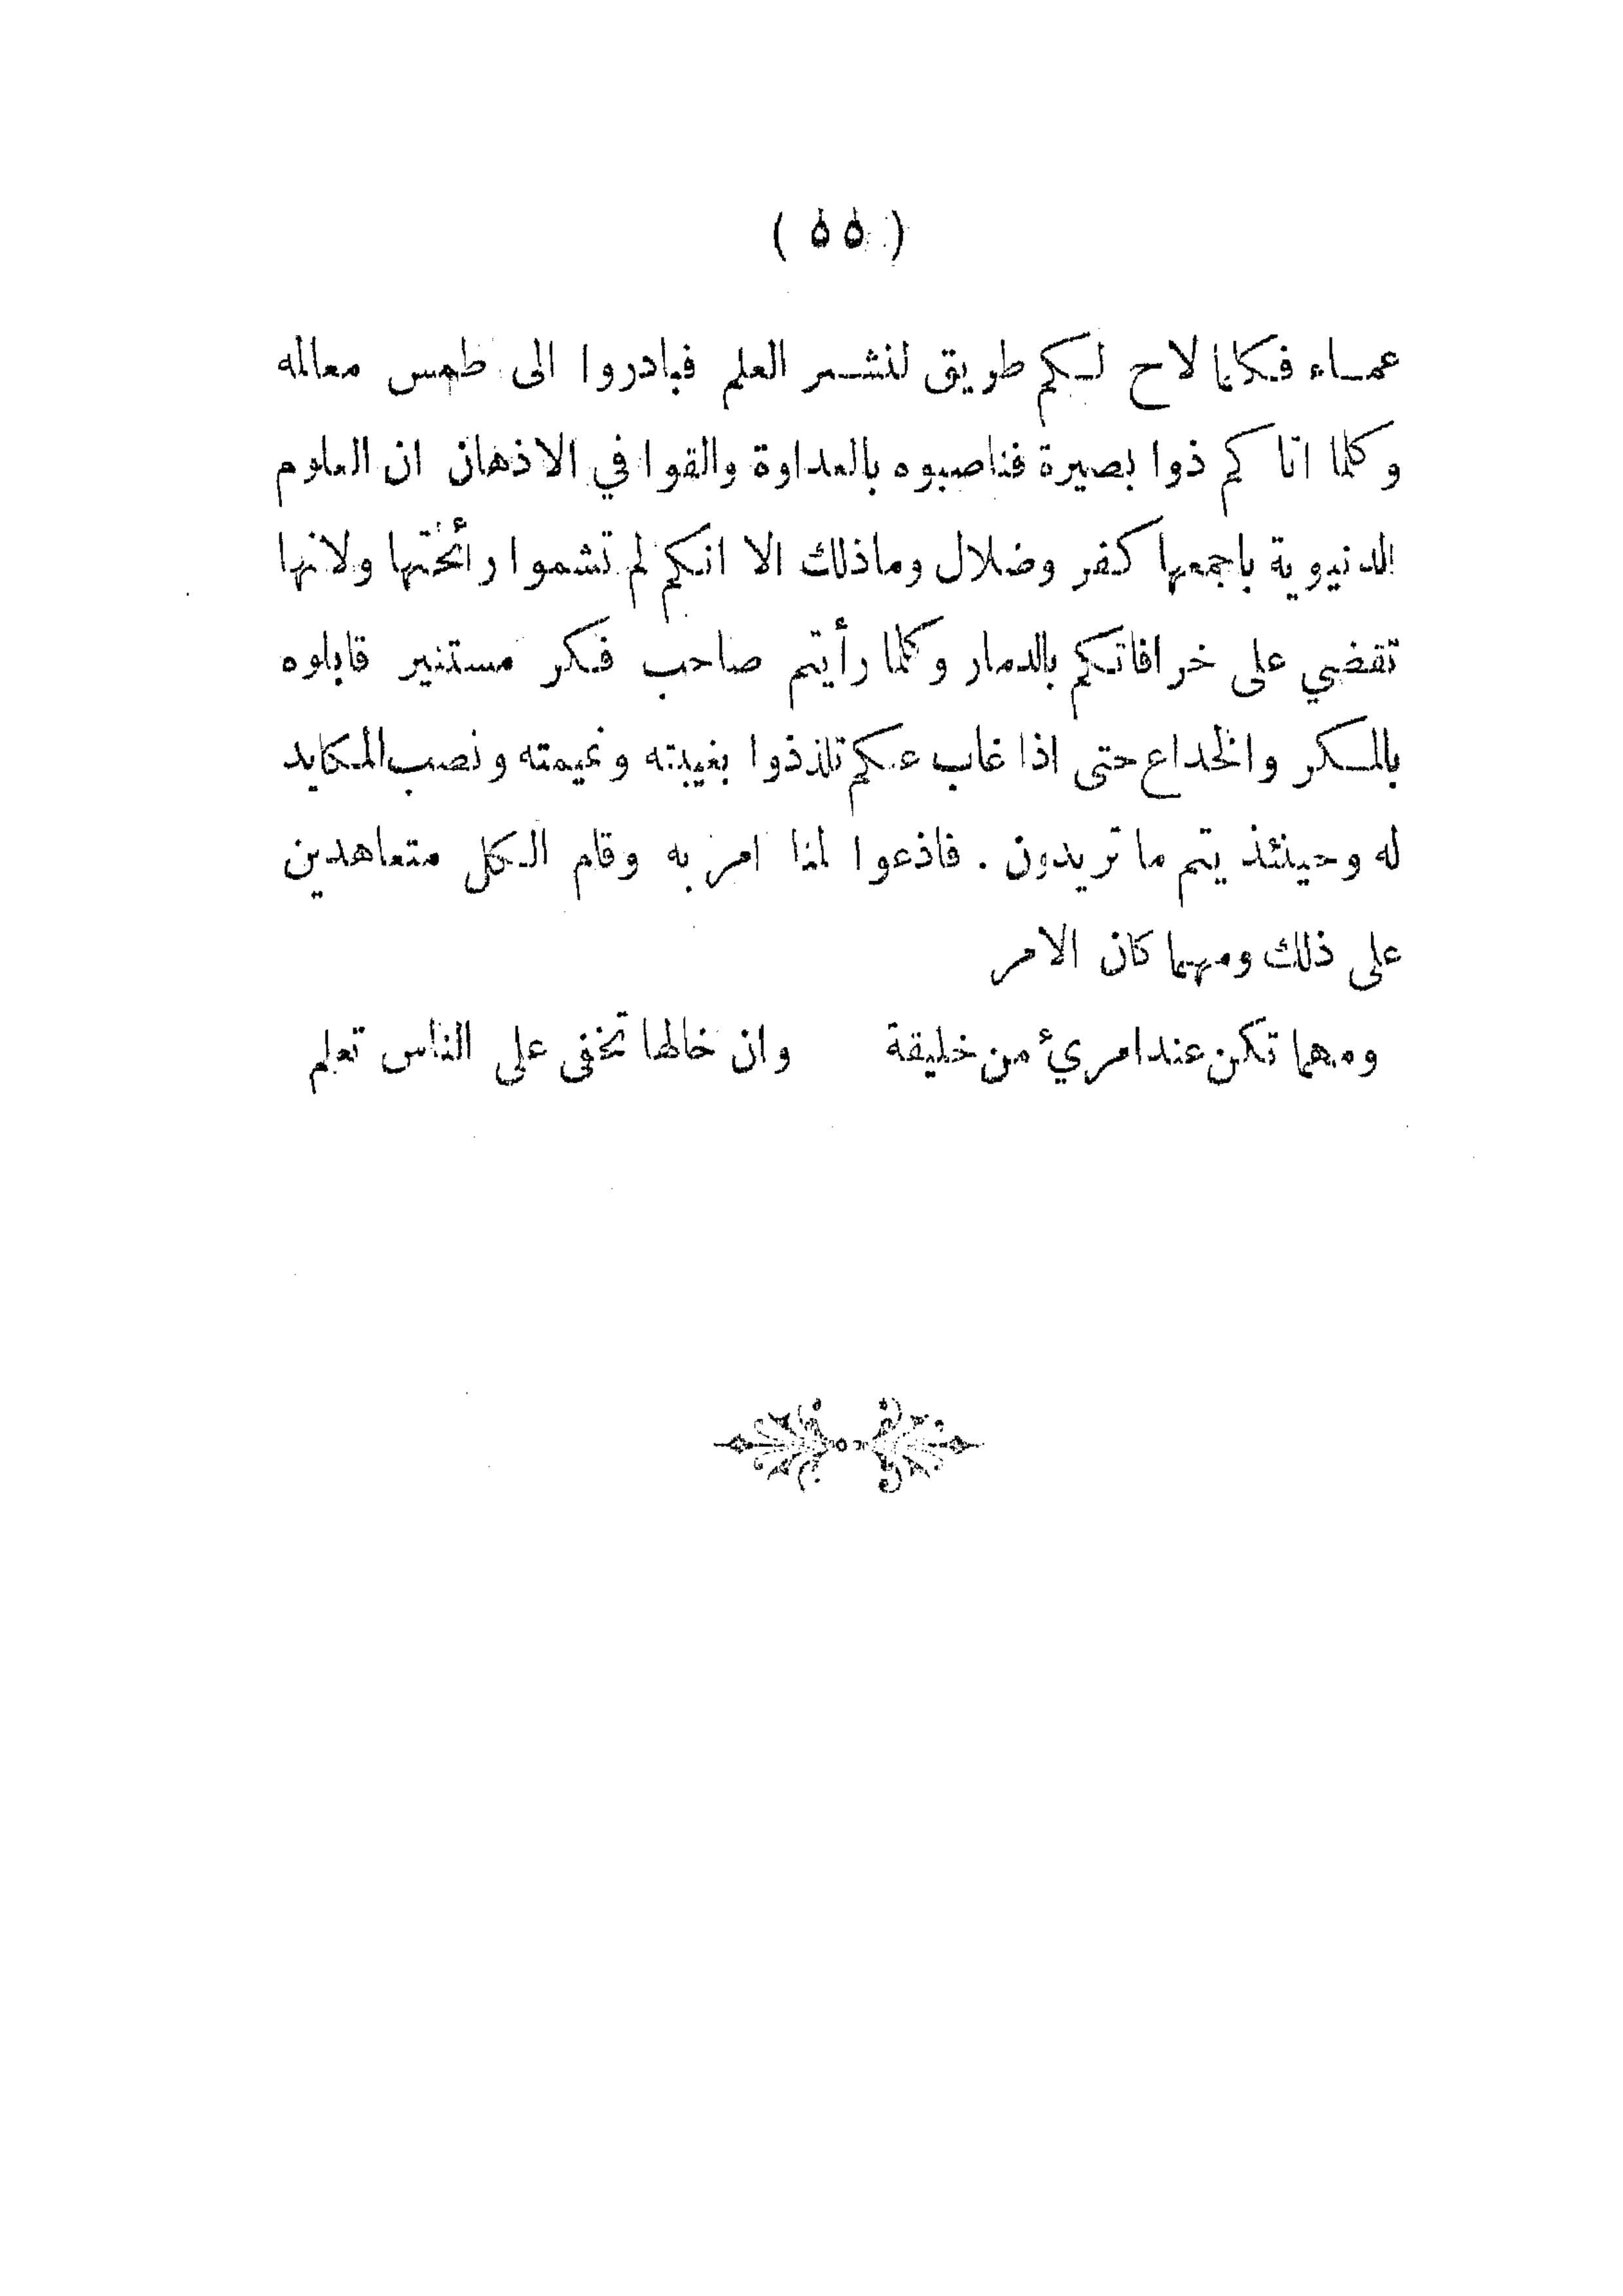 ( ٥٥ )
عمـاء فكلما لاح لـكم طريق لنشـر العلم فبادروا الى طمس معالمه
وكلما اتاكم ذوا بصيرة فناصبوه بالعداوة والقوا في الاذهان ان العلوم
الدنيوية باجمعها كفر وضلال وماذلك الا انكم لم تشموا رأئحتها ولانها
تقضي على خرافاتكم بالدمار وكلما رأيتم صاحب فكر مستنير قابلوه
بالمكر والخداع حتى اذا غاب عنكم تلذذوا بغيبته ونميمته ونصب المكايد
له وحينئذ يتم ما تريدون . فاذعوا لما امر به وقام الـكل متعاهدين
على ذلك ومهما كان الامر
ومهما تكن عند امرئ من خليقة وان خالها تخفى على الناس تعلم